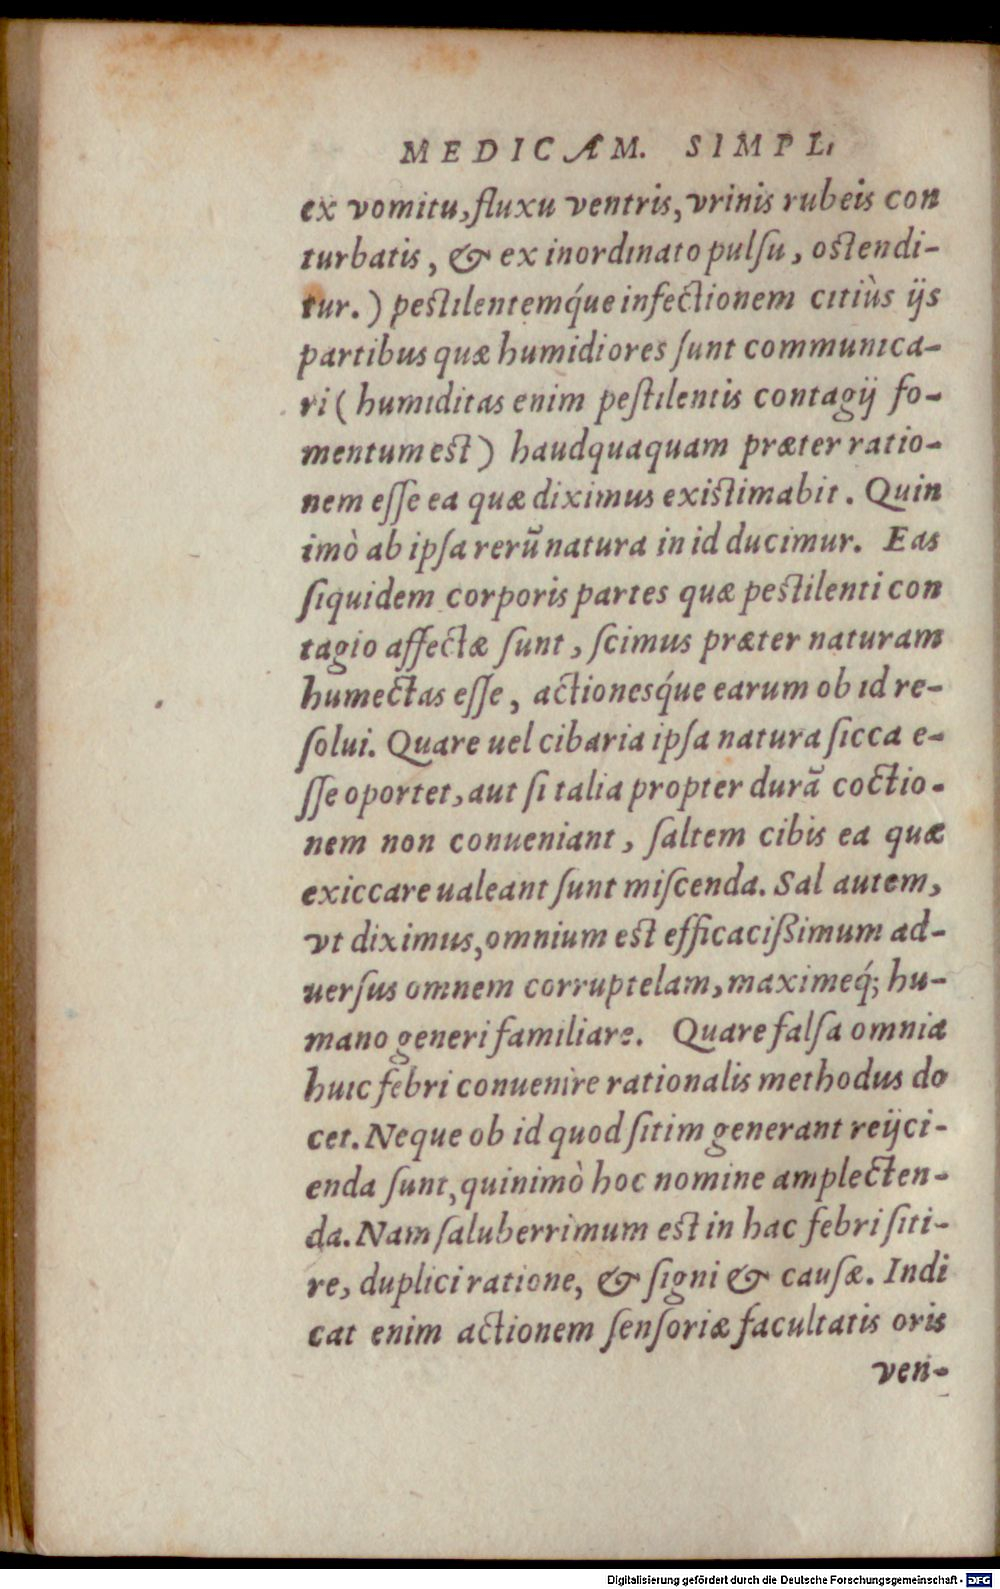 MEDICAM. SIMPL.
ex vomitu, fluxu ventris, vrinis rubeis con
turbatis, & ex inordinato pulſu, oſtendi-
tur.) peſtilentemq́ue infectionem citiùs ijs
partibus quæ humidiores ſunt communica-
ri ( humiditas enim peſtilentis contagij fo-
mentum eſt) haudquaquam præter ratio-
nem eſſe ea quæ diximus exiſtimabit. Quin
imò ab ipſa rerũ natura in id ducimur. Eas
ſiquidem corporis partes quæ peſtilenti con
tagio affectæ ſunt, ſcimus præter naturam
humectas eſſe, actionesq́ue earum ob id re-
ſolui. Quare uel cibaria ipſa natura ſicca e-
ſſe oportet, aut ſi talia propter durã coctio-
nem non conueniant, ſaltem cibis ea quæ
exiccare ualeant ſunt miſcenda. Sal autem,
vt diximus, omnium eſt efficaciſsimum ad-
uerſus omnem corruptelam, maximeq́; hu-
mano generi familiare. Quare falſa omnia
huic febri conuenire rationalis methodus do
cet. Neque ob id quod ſitim generant reijci-
enda ſunt, quinimò hoc nomine amplecten-
da. Nam ſaluberrimum eſt in hac febri ſiti-
re, duplici ratione, & ſigni & cauſæ. Indi
cat enim actionem ſenſoriæ facultatis oris
ven-
Digitalisierung gefördert durch die Deutsche Forschungsgemeinschaft - DFG